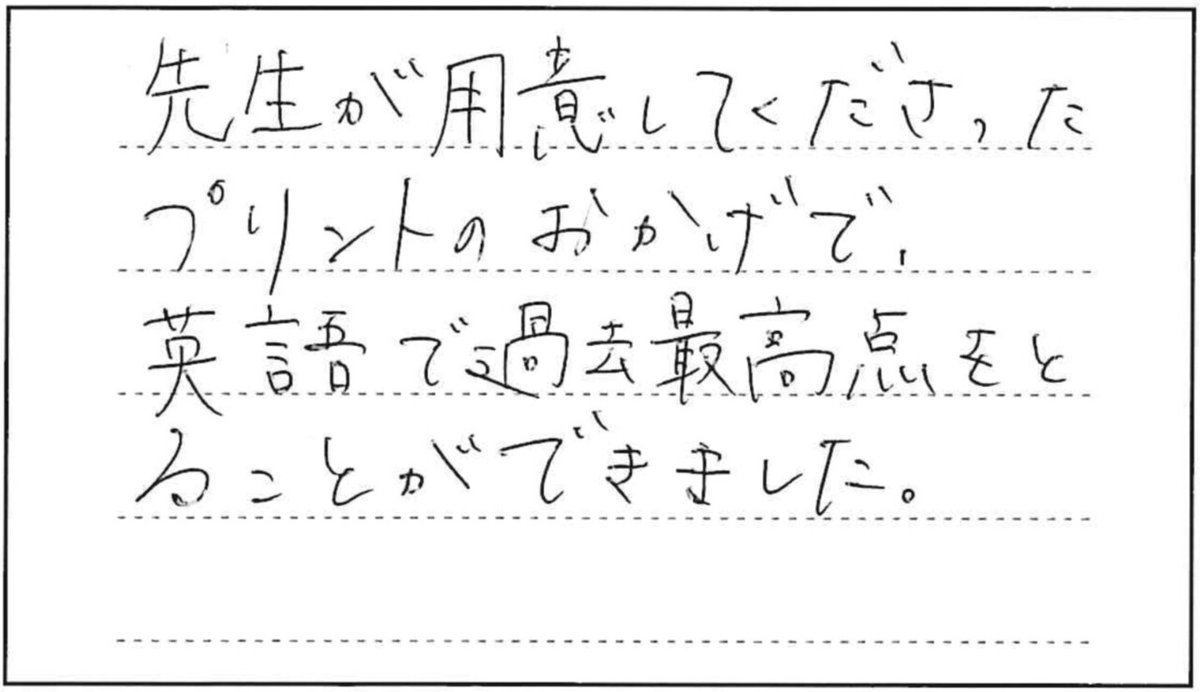 先生が用意してくださった
プリントのおかげで、
英語で過去最高点をと
ることができました。